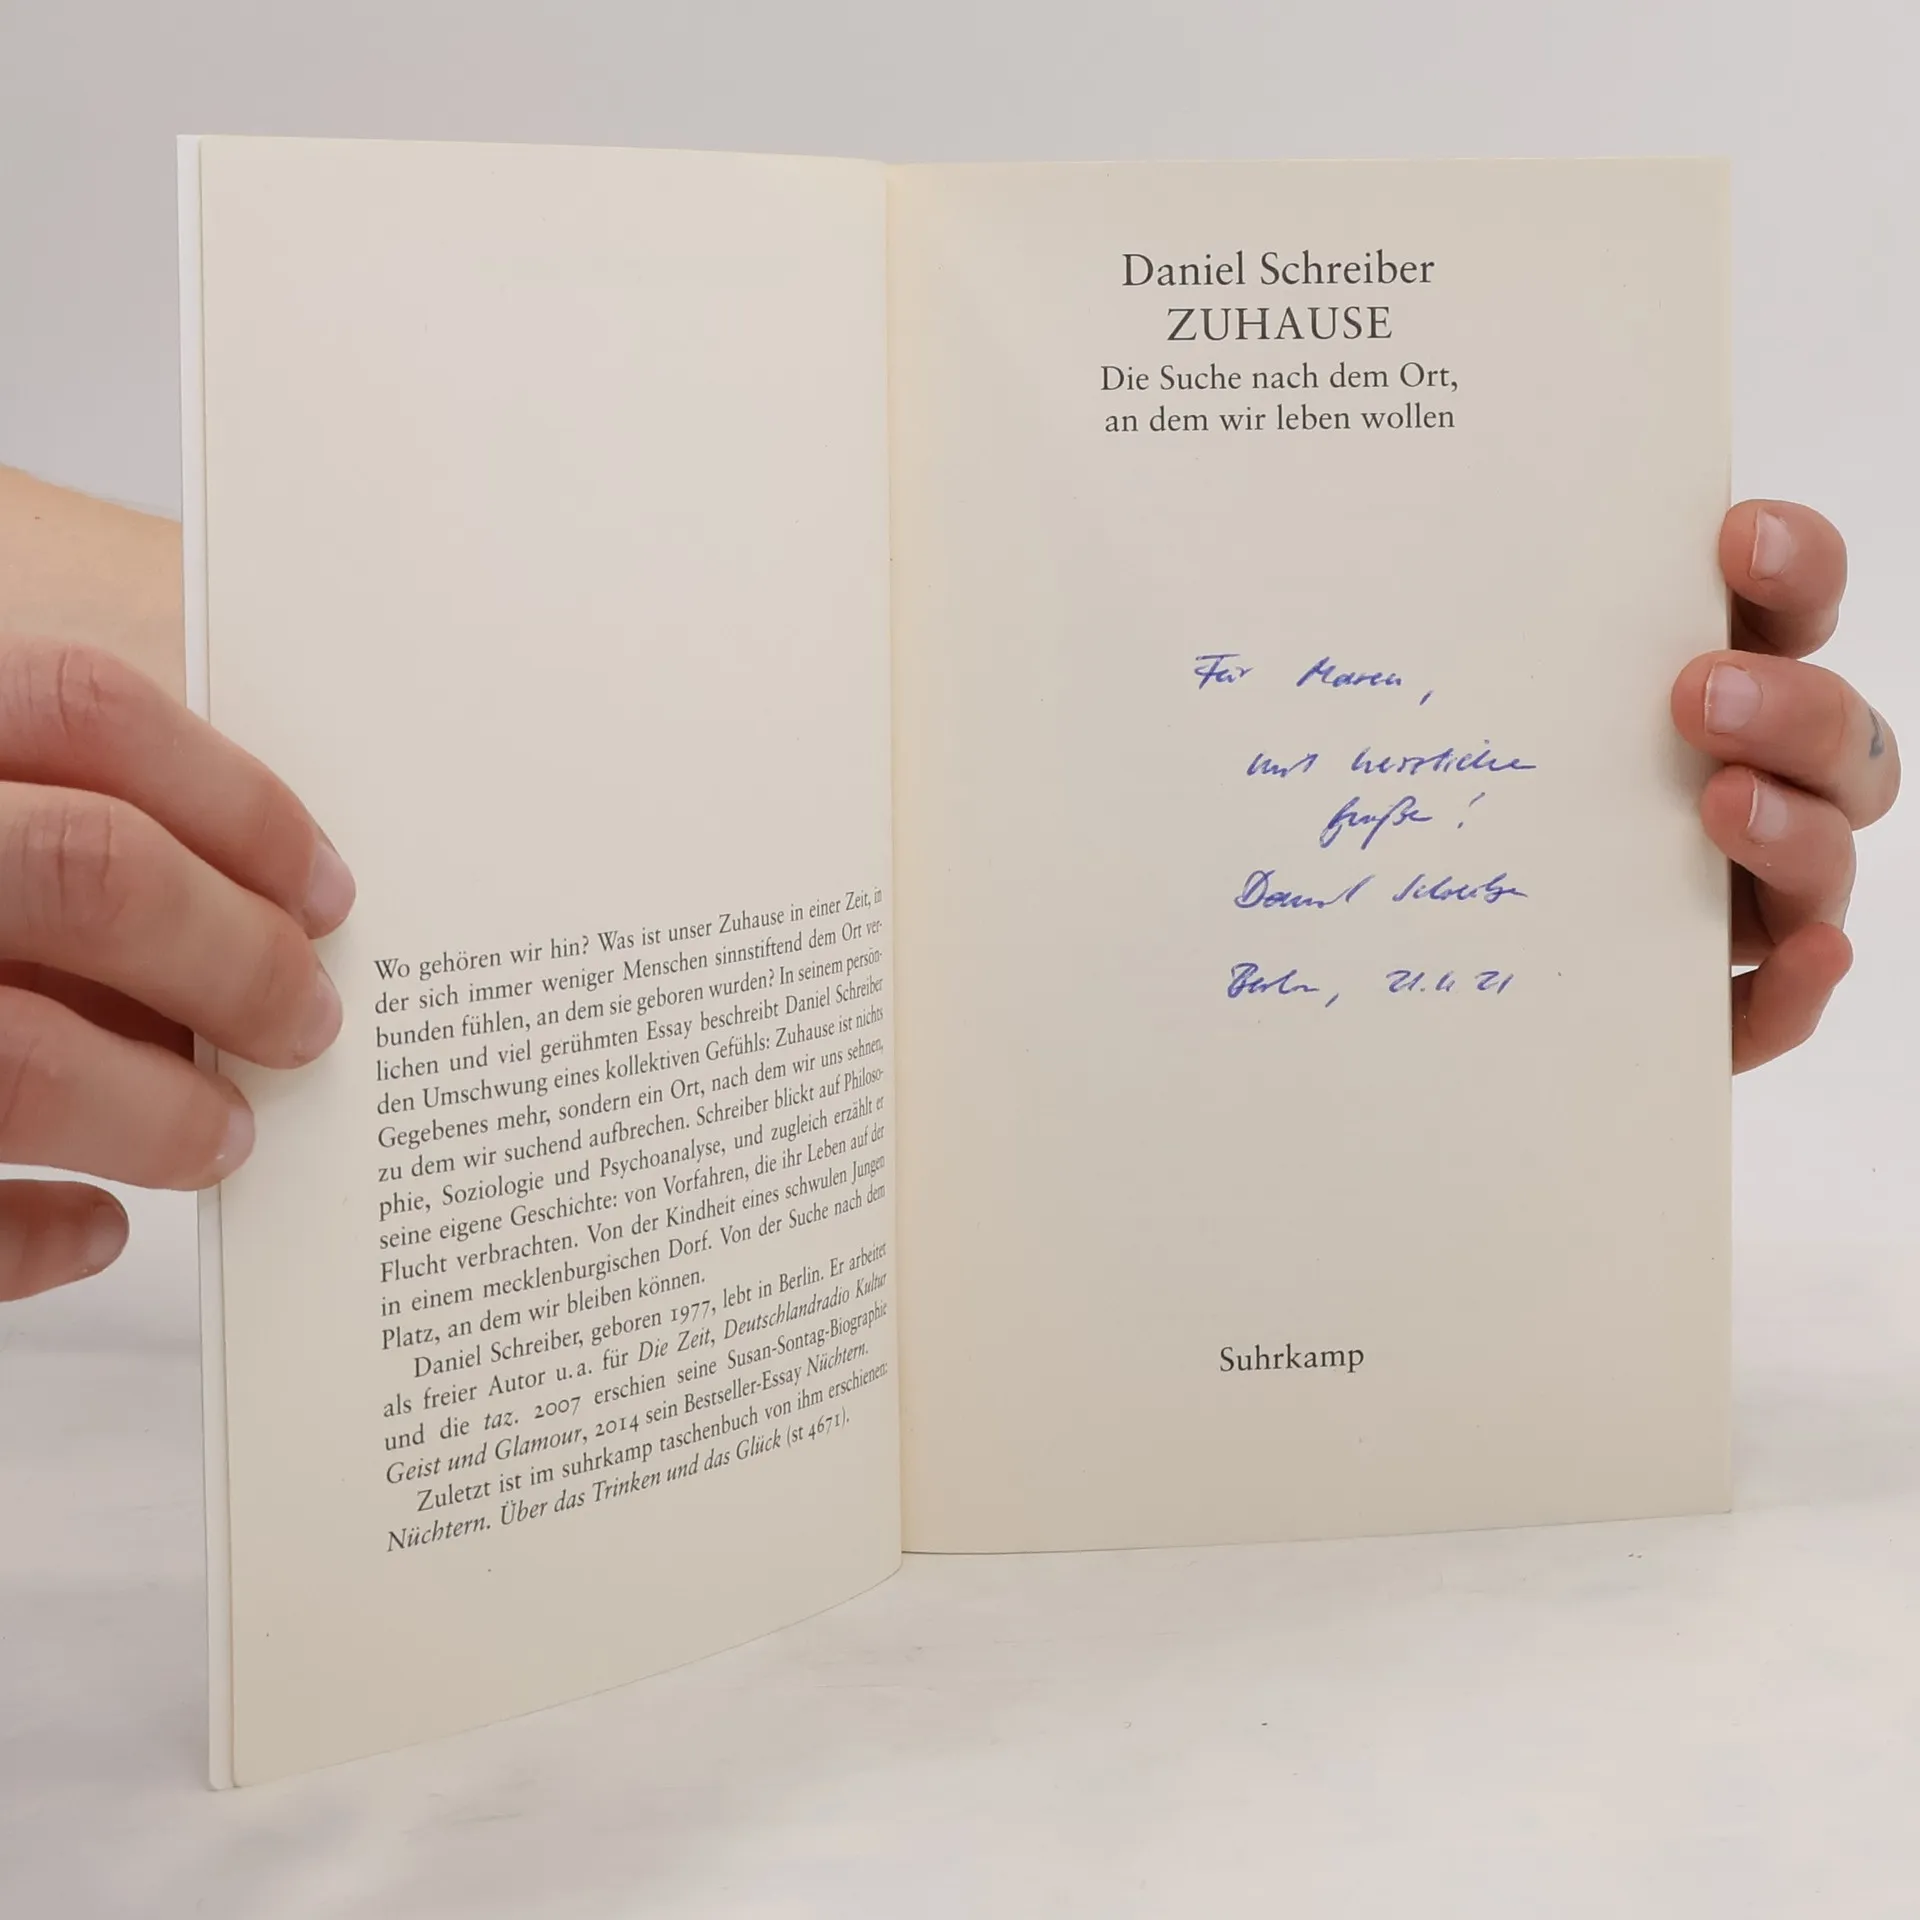 Wo gehören wir hin? Was ist unser Zuhause in einer Zeit, in
der sich immer weniger Menschen sinnstiftend dem Ort ver-
bunden fühlen, an dem sie geboren wurden? In seinem persön-
lichen und viel gerühmten Essay beschreibt Daniel Schreiber
den Umschwung eines kollektiven Gefühls: Zuhause ist nichts
Gegebenes mehr, sondern ein Ort, nach dem wir uns sehnen,
zu dem wir suchend aufbrechen. Schreiber blickt auf Philoso-
phie, Soziologie und Psychoanalyse, und zugleich erzählt er
seine eigene Geschichte: von Vorfahren, die ihr Leben auf der
Flucht verbrachten. Von der Kindheit eines schwulen Jungen
in einem mecklenburgischen Dorf. Von der Suche nach dem
Platz, an dem wir bleiben können.
Daniel Schreiber, geboren 1977, lebt in Berlin. Er arbeitet
als freier Autor u. a. für Die Zeit, Deutschlandradio Kultur
und die taz. 2007 erschien seine Susan-Sontag-Biographie
Geist und Glamour, 2014 sein Bestseller-Essay Nüchtern.
Zuletzt ist im suhrkamp taschenbuch von ihm erschienen:
Nüchtern. Über das Trinken und das Glück (st 4671).
Daniel Schreiber
ZUHAUSE
Die Suche nach dem Ort,
an dem wir leben wollen
Für Maren,
mit herzlichen
Grüßen!
Daniel Schreiber
Berlin, 21. 21
Suhrkamp